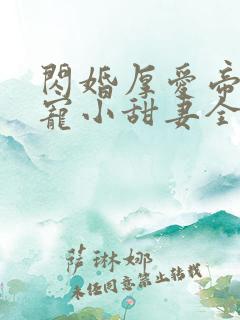 閃婚厚愛帝
寵小甜妻全
薩琳娜
未經同意禁止轉載